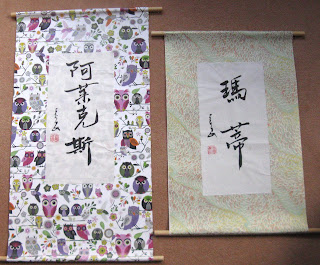 阿莱克斯
瑪蒂